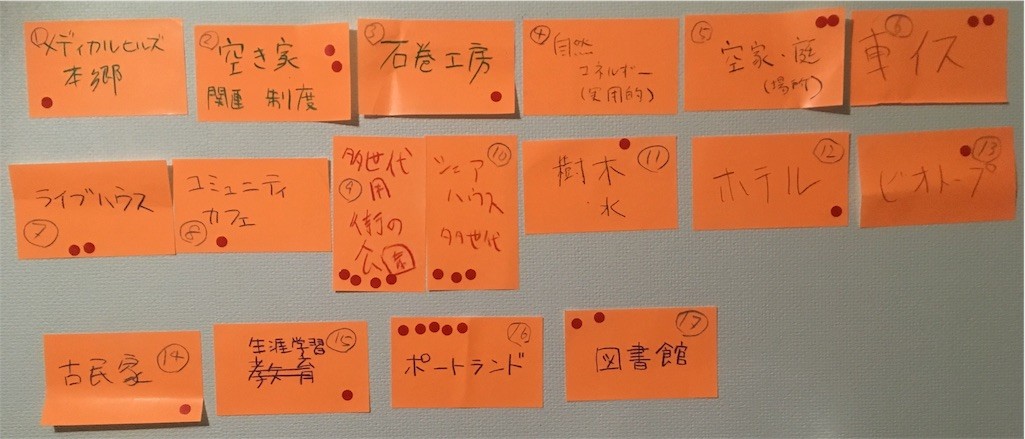 ① メディカルヒルズ
本郷
② 空き家
関連 制度
③ 石巻工房
④ 自然
エネルギー
(実用的)
⑤ 空家・庭
(場所)
⑥ 車イス
⑦ ライブハウス
⑧ コミュニティ
カフェ
⑨ 多世代
用
街の
公家
⑩ シェア
ハウス
多世代
⑪ 樹木
水
⑫ ホテル
⑬ ビオトープ
⑭ 古民家
⑮ 生涯学習
教育
⑯ ポートランド
⑰ 図書館